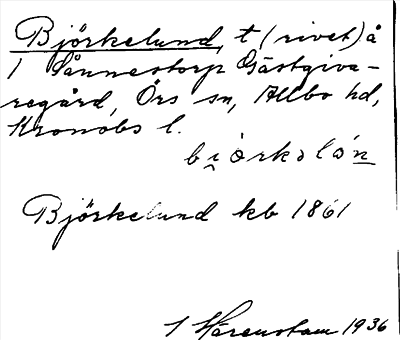 Björkelund, t (rivet) å
1 Sånnestorp Gästgiva-
regård, Örs sn, Allbo hd,
Kronobs l.
Björkelund kb 1861
1936